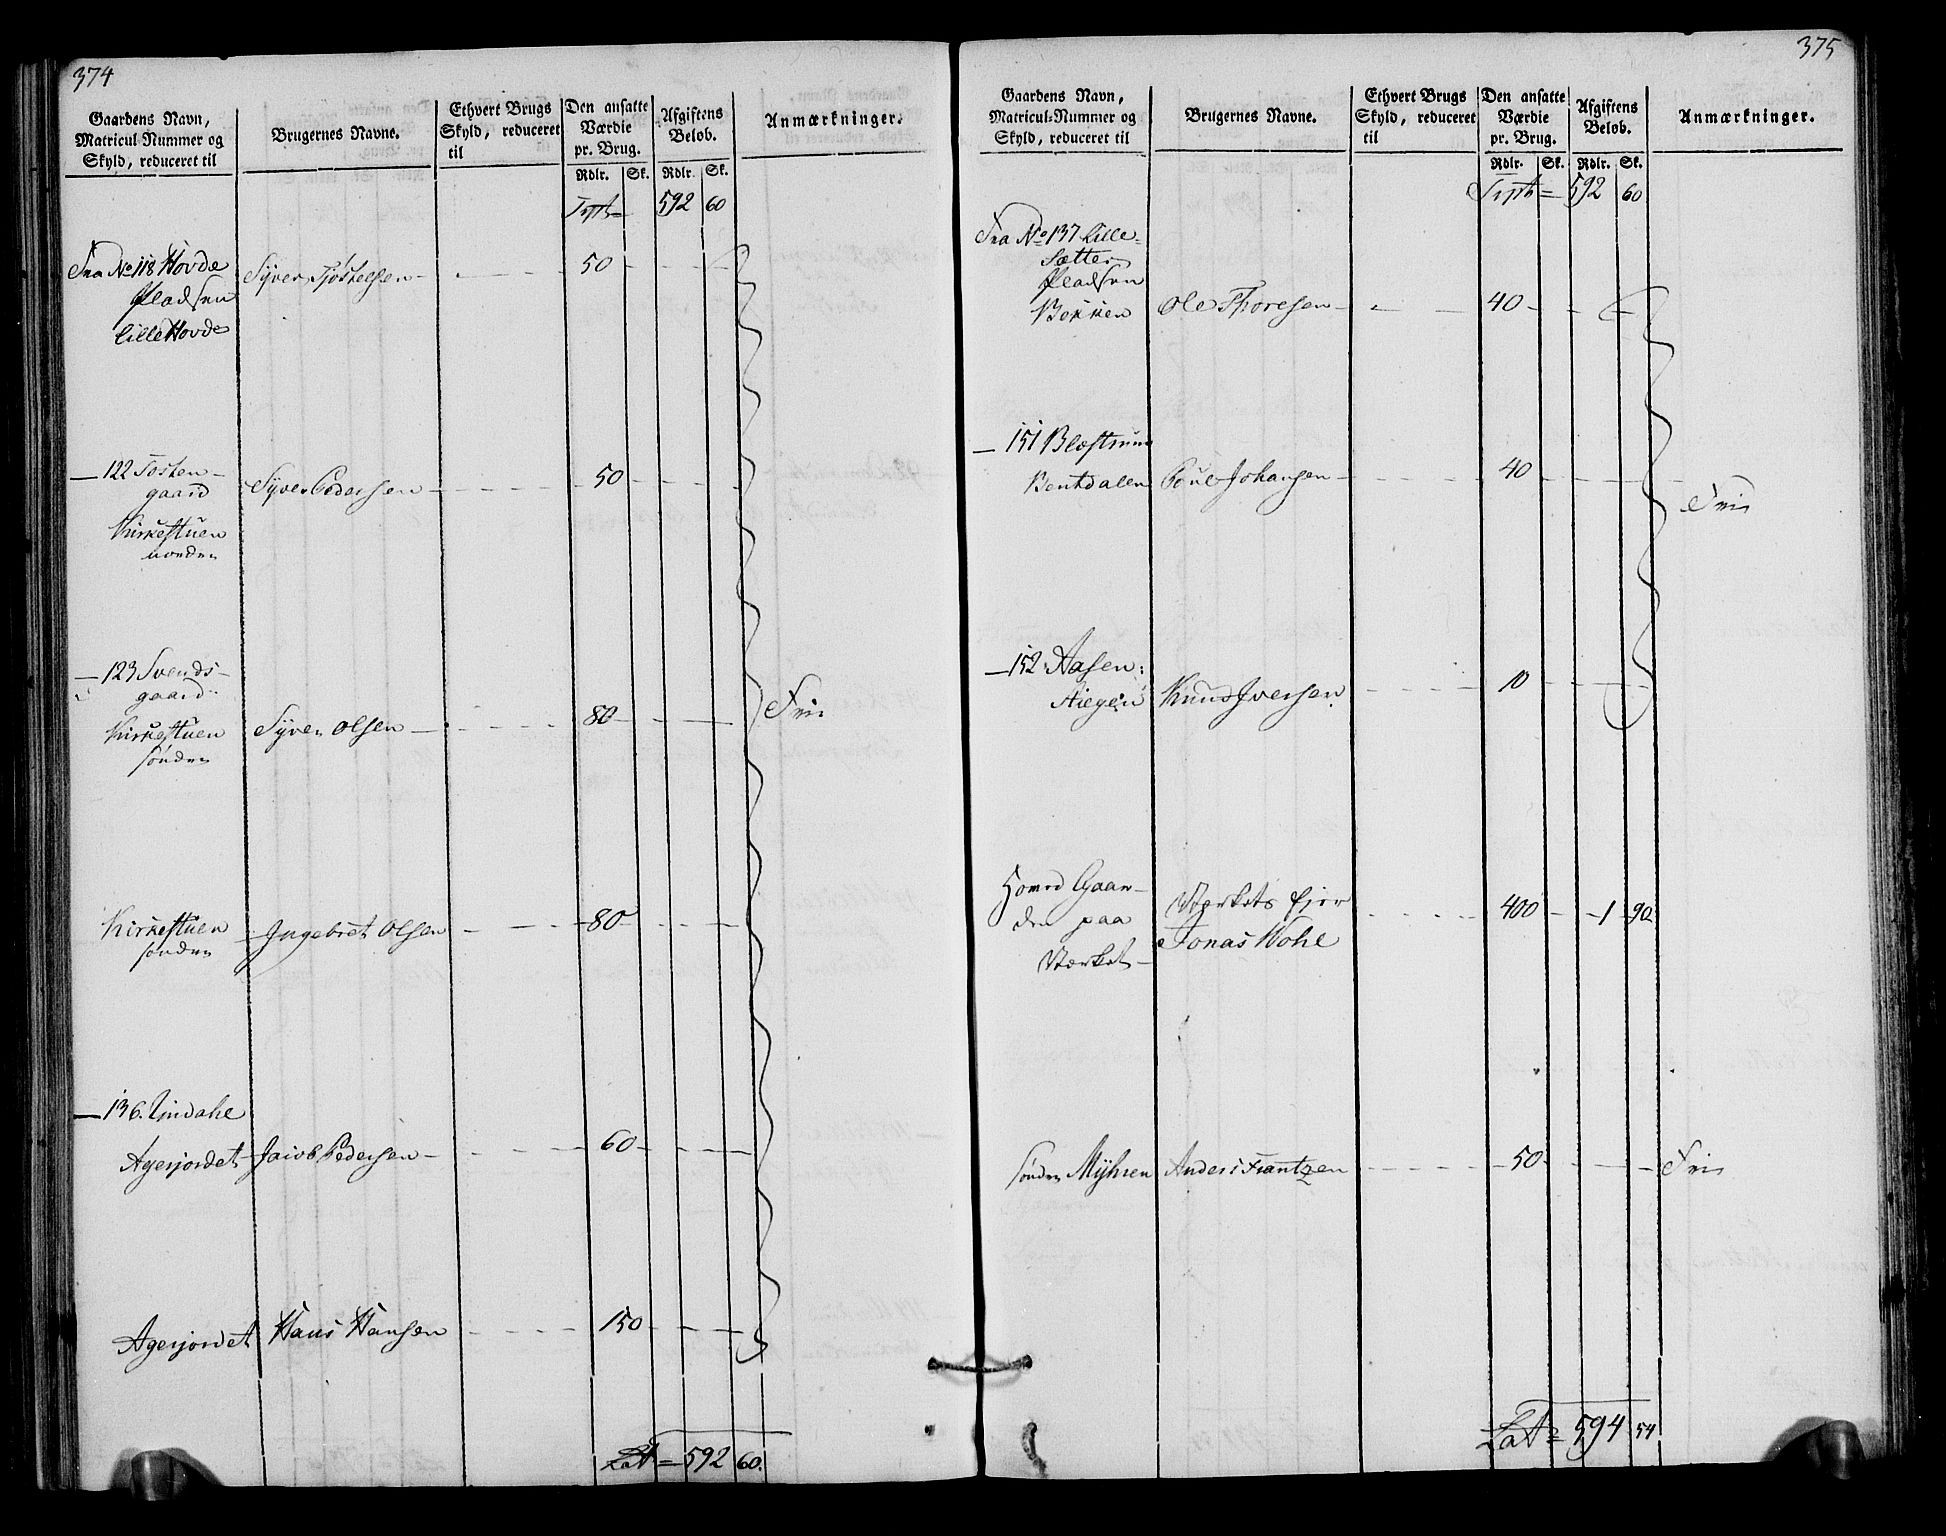 374
Gaardens Navn, Matricul-Nummer og Skyld, reduceret til
Brugernes Navne.
Ethvert Brugs Skyld, reduceret til
Den ansatte Værdie pr. Brug.
Afgiftens Beløb.
Anmærkninger.
Rdlr. Sk. Rdlr. Sk.
Trpt= 592 60
Fra No 118 Hovde Syver Tjøstelsen - 50
Pladsen
Lille Hovde
- 122 Tosten-
gaard Syver Pedersen - 50
Kirkestuen
nordre
- 123 Svends-
gaard
Kirkestuen Syver Olsen - 80 Frie
søndre
Kirkestuen Ingebret Olsen - 80
søndre
- 136. Lindahl
Agerjordet Jacob Pedersen - 60
Agerjordet Hans Hansen 150
Lat = 592 60.
375
Gaardens Navn, Matricul-Nummer og Skyld, reduceret til
Brugernes Navne.
Ethvert Brugs Skyld, reduceret til
Den ansatte Værdie pr. Brug.
Afgiftens Beløb.
Anmærkninger.
Rdlr. Sk. Rdlr. Sk.
Trpt = 592 60
Fra No 137 Lille-
Sætter
Pladsen
Bakken Ole Thoresen - 40
- 151 Blæstrue
Bentdalen Poul Johansen - 40
Frie
- 152 Aasen:
Stiegen Knud Iversen 10
Hoved Gaar- Værkets Ejer
den paa 400 1 90
Værket - Jonas Wohl
søndre Myhren Anders Frantzen 50 Frie
Lat = 594 54